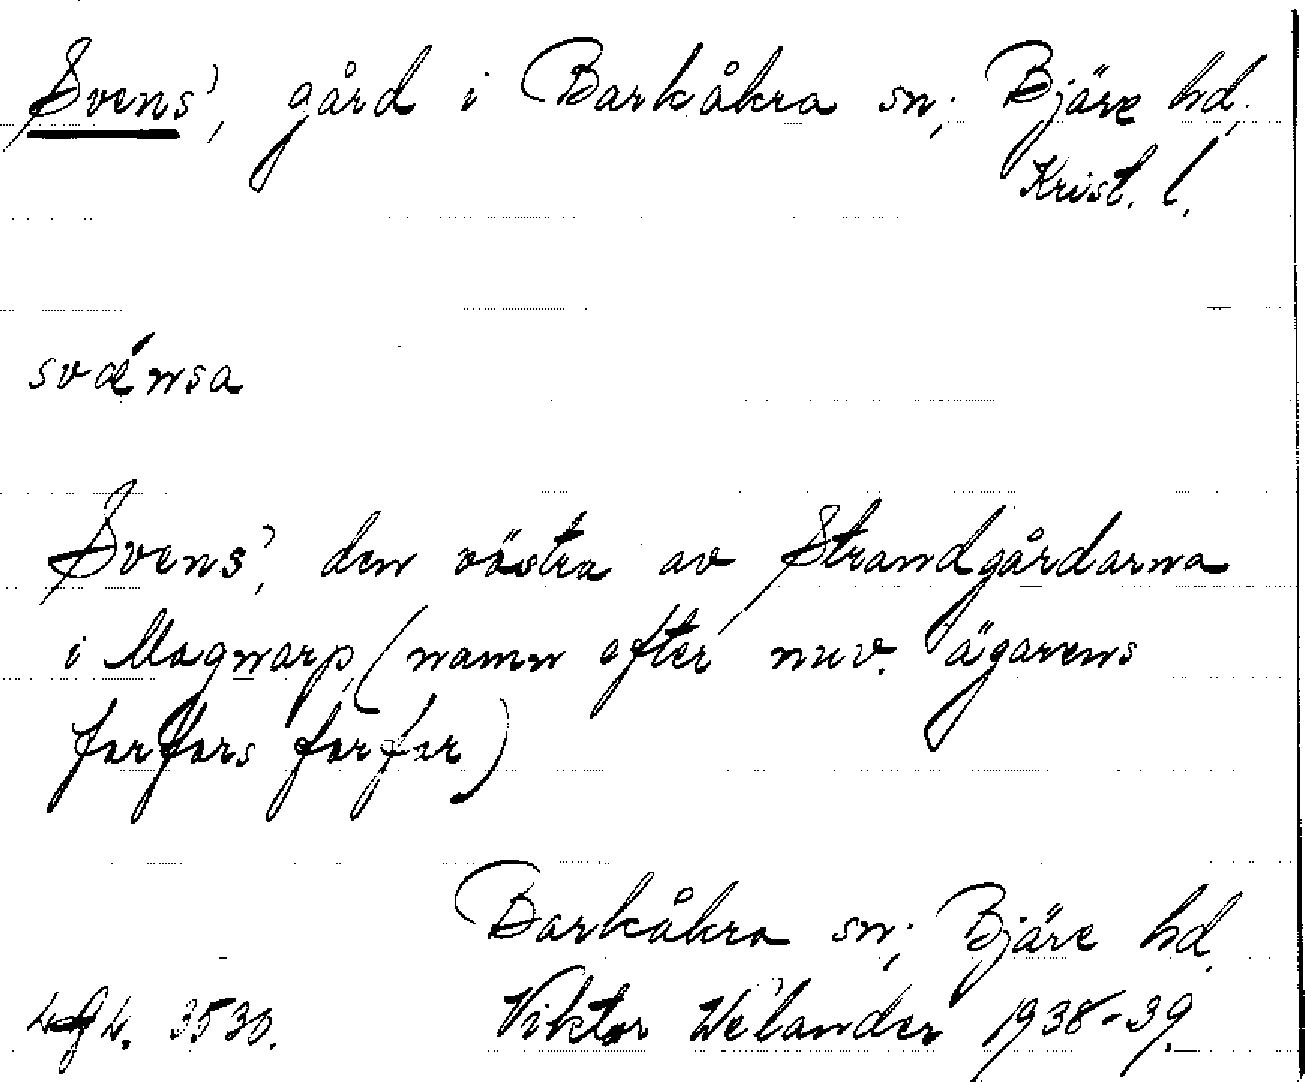 Svens', gård i Barkåkra sn; Bjäre hd,
Krist. l.
svǽnsa
Svens', den västra av Strandgårdarna
i Magnarp, (namn efter nuv. ägarens
farfars farfar)
Barkåkra sn; Bjäre hd.
3530. Viktor Welander 1938-39.